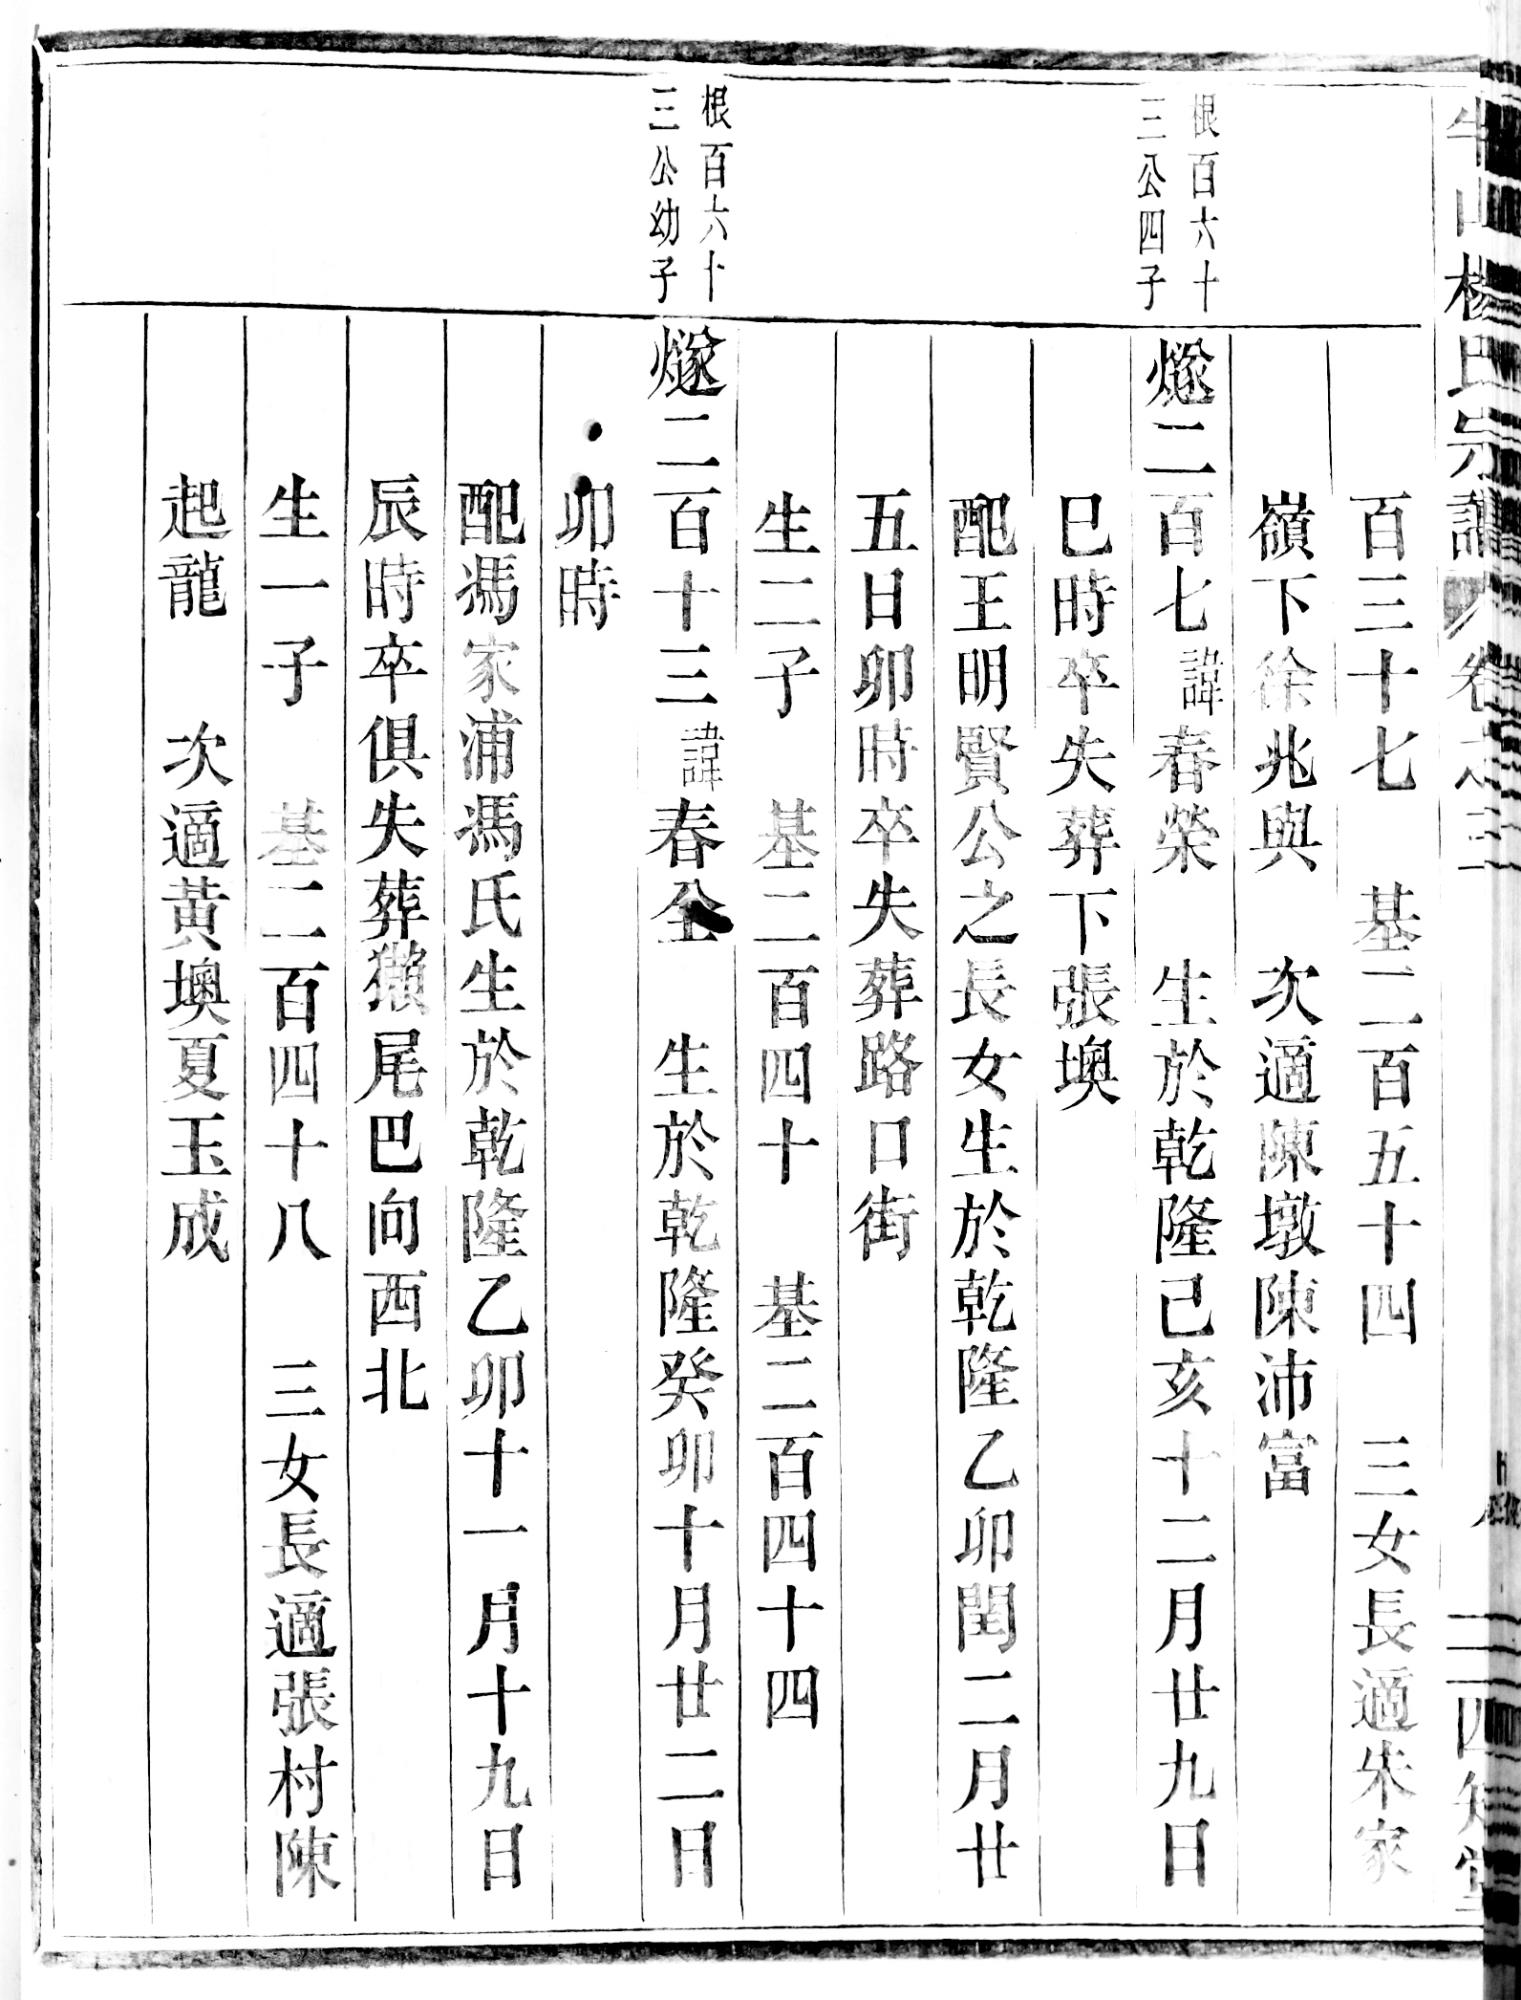 山楊氏宗譜 卷之三 四知堂
百三十七 基二百五十四 三女長適朱家
嶺下徐兆與 次適陳墩陳沛富
根百六十
三公四子
燧二百七諱春榮 生於乾隆己亥十二月廿九日
巳時卒失葬下張墺
配王明賢公之長女生於乾隆乙卯閏二月廿
五日卯時卒失葬路口街
生二子 基二百四十 基二百四十四
根百六十
三公幼子
燧二百十三諱春全 生於乾隆癸卯十月廿二日
卯時
配馮家浦馮氏生於乾隆乙卯十一月十九日
辰時卒俱失葬獺尾巴向西北
生一子 基二百四十八 三女長適張村陳
起龍 次適黃墺夏玉成